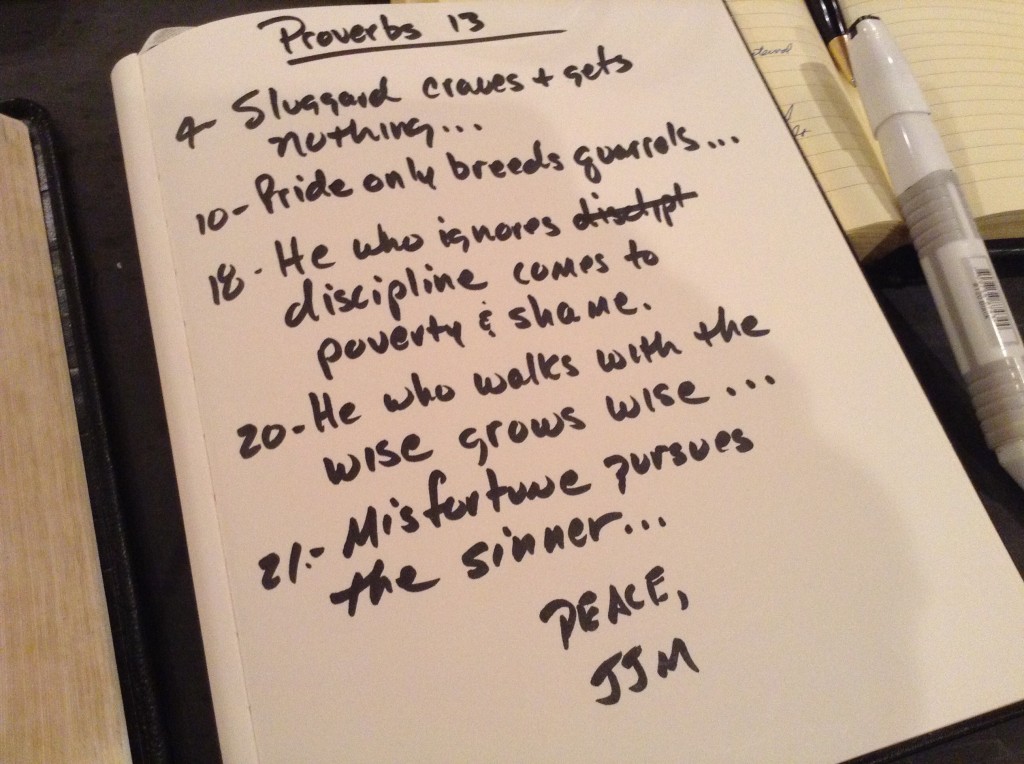 Proverbs 13
4- Sluggard craves + gets
nothing...
10- Pride only breeds quarrels...
18- He who ignores disclpt
discipline comes to
poverty & shame.
20- He who walks with the
wise grows wise...
21.- Misfortune pursues
the sinner...
PEACE,
JJM